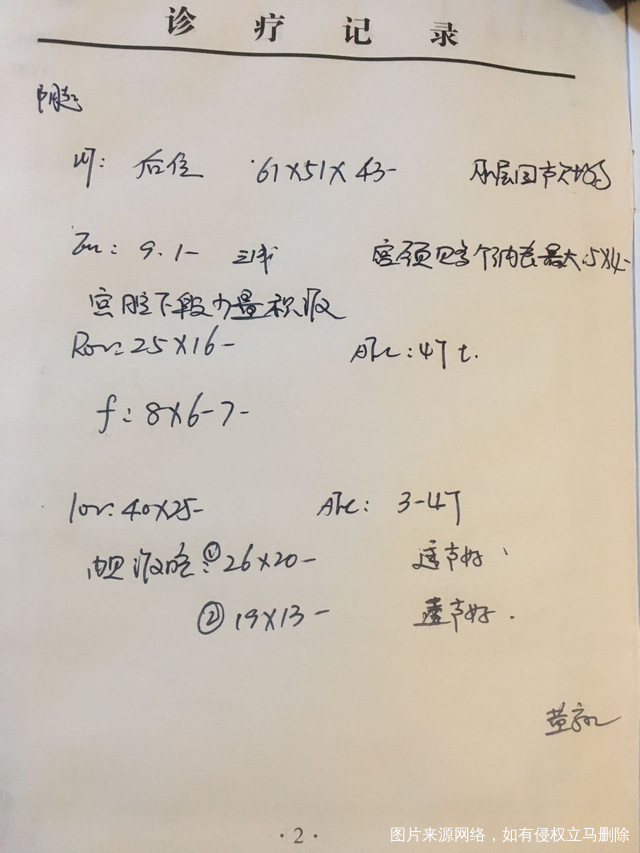 诊疗记录
阴超
UT: 后位 61X51X43- 肌层回声欠均匀
Em: 9.1- 三线 宫颈见多个纳囊最大5X4-
宫腔下段少量积液
Rov: 25X16- AFC: 4个
f: 8X6-7-
lov: 40X25- AFC: 3-4个
内见液暗: ① 26X20- 透声好
② 19X13- 透声好.
·2·
图片来源网络，如有侵权立马删除